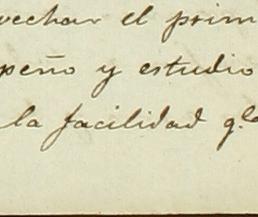 vechar el prim
peño y estudio
la facilidad q.la